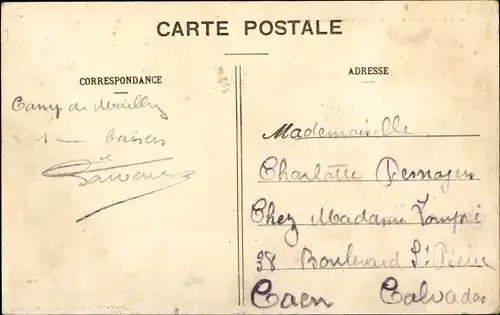 CARTE POSTALE
CORRESPONDANCE
Camp de Mailly
baisers
ADRESSE
Mademoiselle
Charlotte
Chez Madame
38 Boulevard St Pierre
Caen Calvados